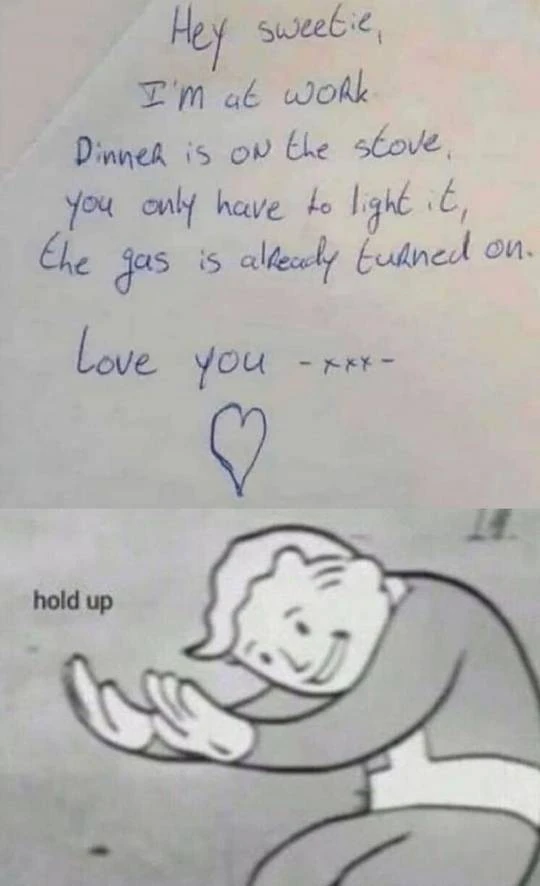 Hey sweetie,
I'm at work.
Dinner is on the stove,
you only have to light it,
the gas is already turned on.
Love you -xxx-
hold up